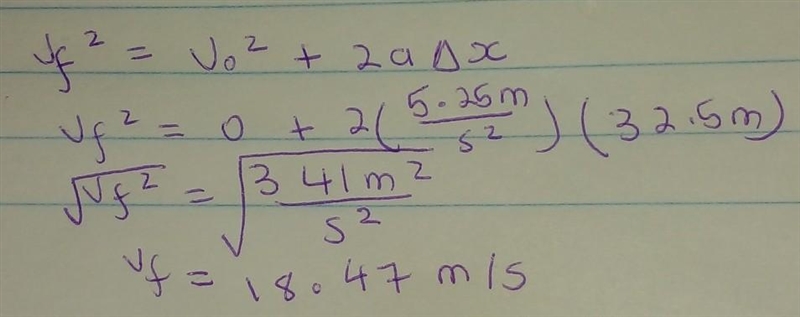 Vf² = V₀² + 2a Δx
Vf² = 0 + 2(5.25m/s²)(32.5m)
√Vf² = √341m²/s²
Vf = 18.47 m/s